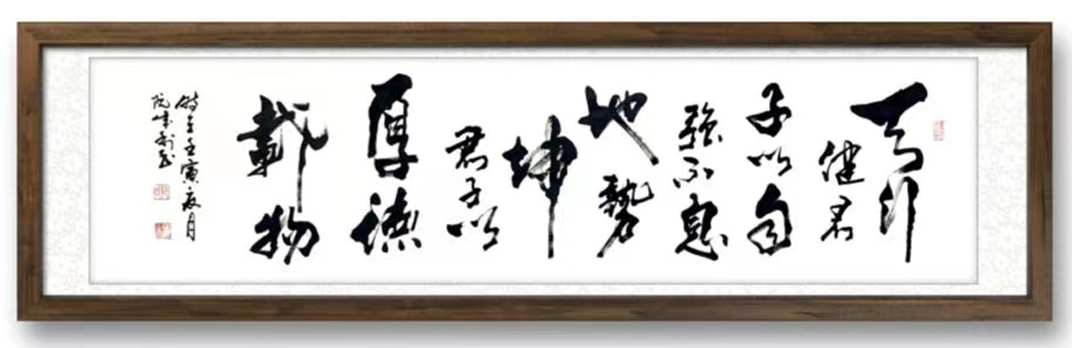 天行
健君
子以自
強不息
地勢
坤
君子以
厚德
載物
時在壬寅夏月